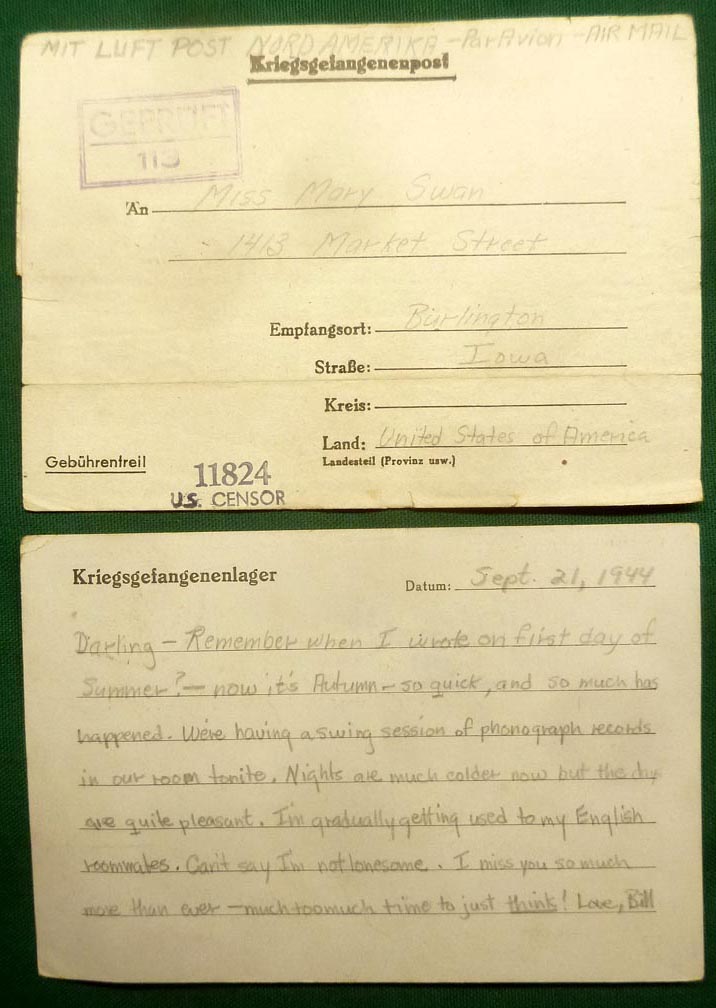 MIT LUFT POST NORD AMERIKA - Par Avion - AIR MAIL
Kriegsgefangenenpost
GEPRÜFT
113
An Miss Mary Swan
1413 Market Street
Empfangsort: Burlington
Straße: Iowa
Kreis:
Land: United States of America
Landesteil (Provinz usw.)
Gebührenfrei!
11824
U.S. CENSOR
Kriegsgefangenenlager
Datum: Sept. 21, 1944
Darling - Remember when I wrote on first day of
Summer? - now it's Autumn - so quick, and so much has
happened. We're having a swing session of phonograph records
in our room tonite. Nights are much colder now but the day
are quite pleasant. I'm gradually getting used to my English
roommates. Can't say I'm not lonesome. I miss you so much
more than ever - much too much time to just think! Love, Bill